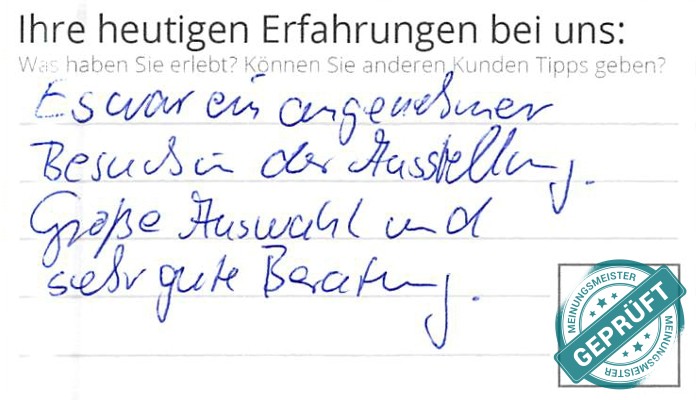 Ihre heutigen Erfahrungen bei uns:
Was haben Sie erlebt? Können Sie anderen Kunden Tipps geben?
Es war ein angenehmer
Besuch in der Ausstellung.
Große Auswahl und
sehr gute Beratung.
MEINUNGSMEISTER
GEPRÜFT
MEINUNGSMEISTER
MEINUNGSMEISTER